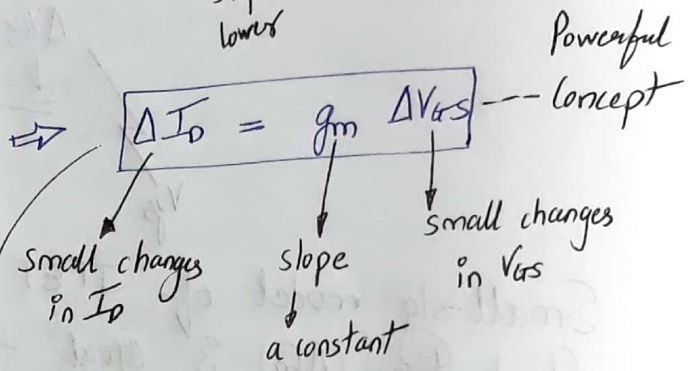 lower
Powerful
Concept
⇒ ΔI_D = g_m ΔV_GS ---
small changes
in I_D
slope
a constant
small changes
in V_GS